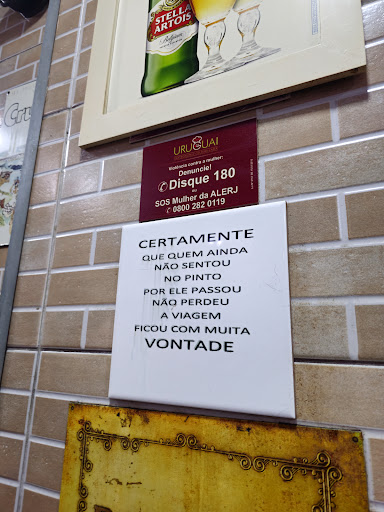 STELLA
ARTOIS
Belgium
Cru
URUGUAI
Violência contra a mulher:
Denuncie!
Disque 180
ou
SOS Mulher da ALERJ
0800 282 0119
CERTAMENTE
QUE QUEM AINDA
NÃO SENTOU
NO PINTO
POR ELE PASSOU
NÃO PERDEU
A VIAGEM
FICOU COM MUITA
VONTADE